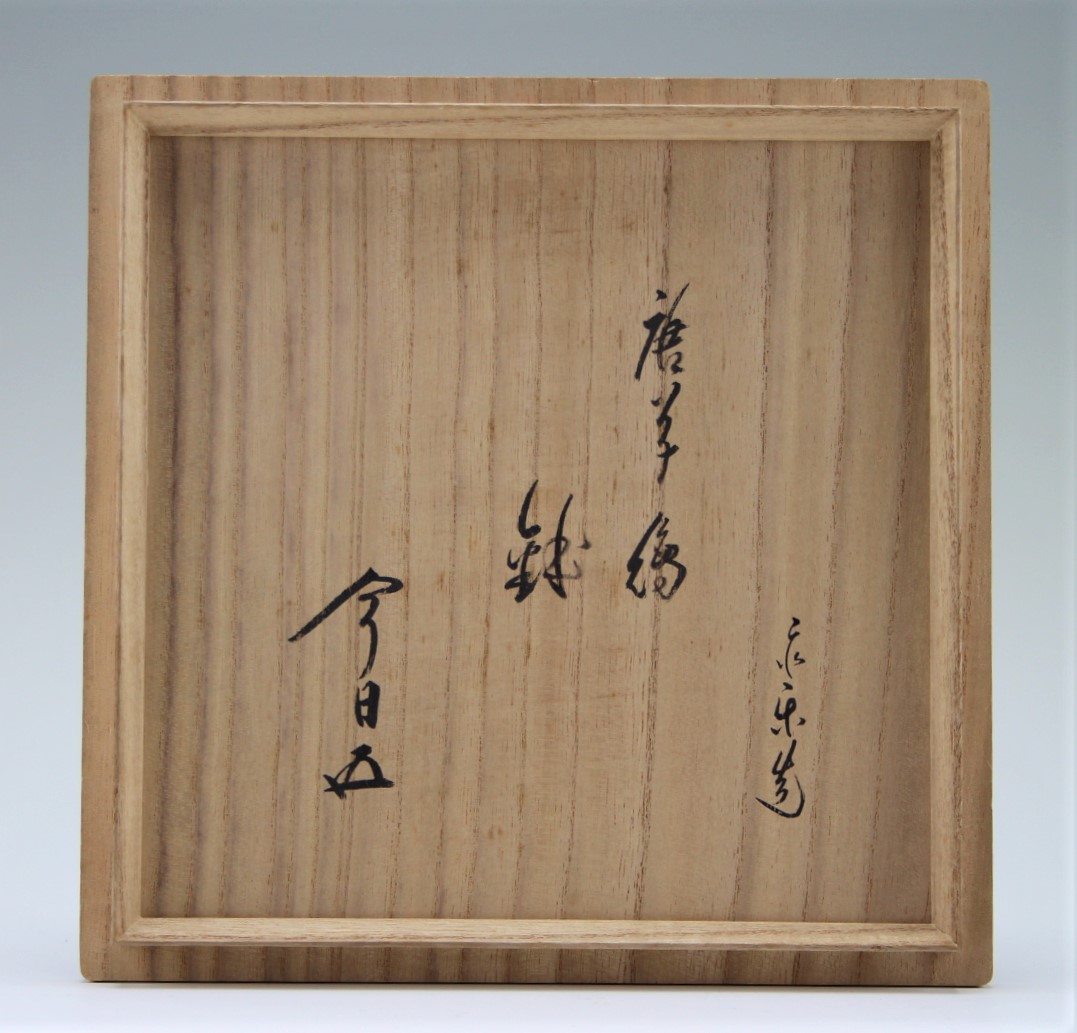 永楽造
唐草繪
鉢
今日